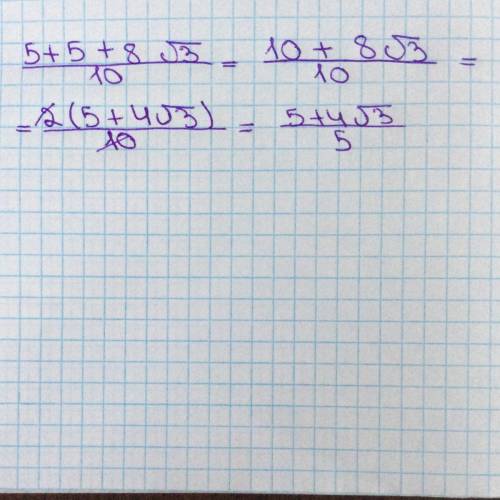 (5+5+8√3)/10 = (10+8√3)/10 =
= 2(5+4√3)/10 = (5+4√3)/5